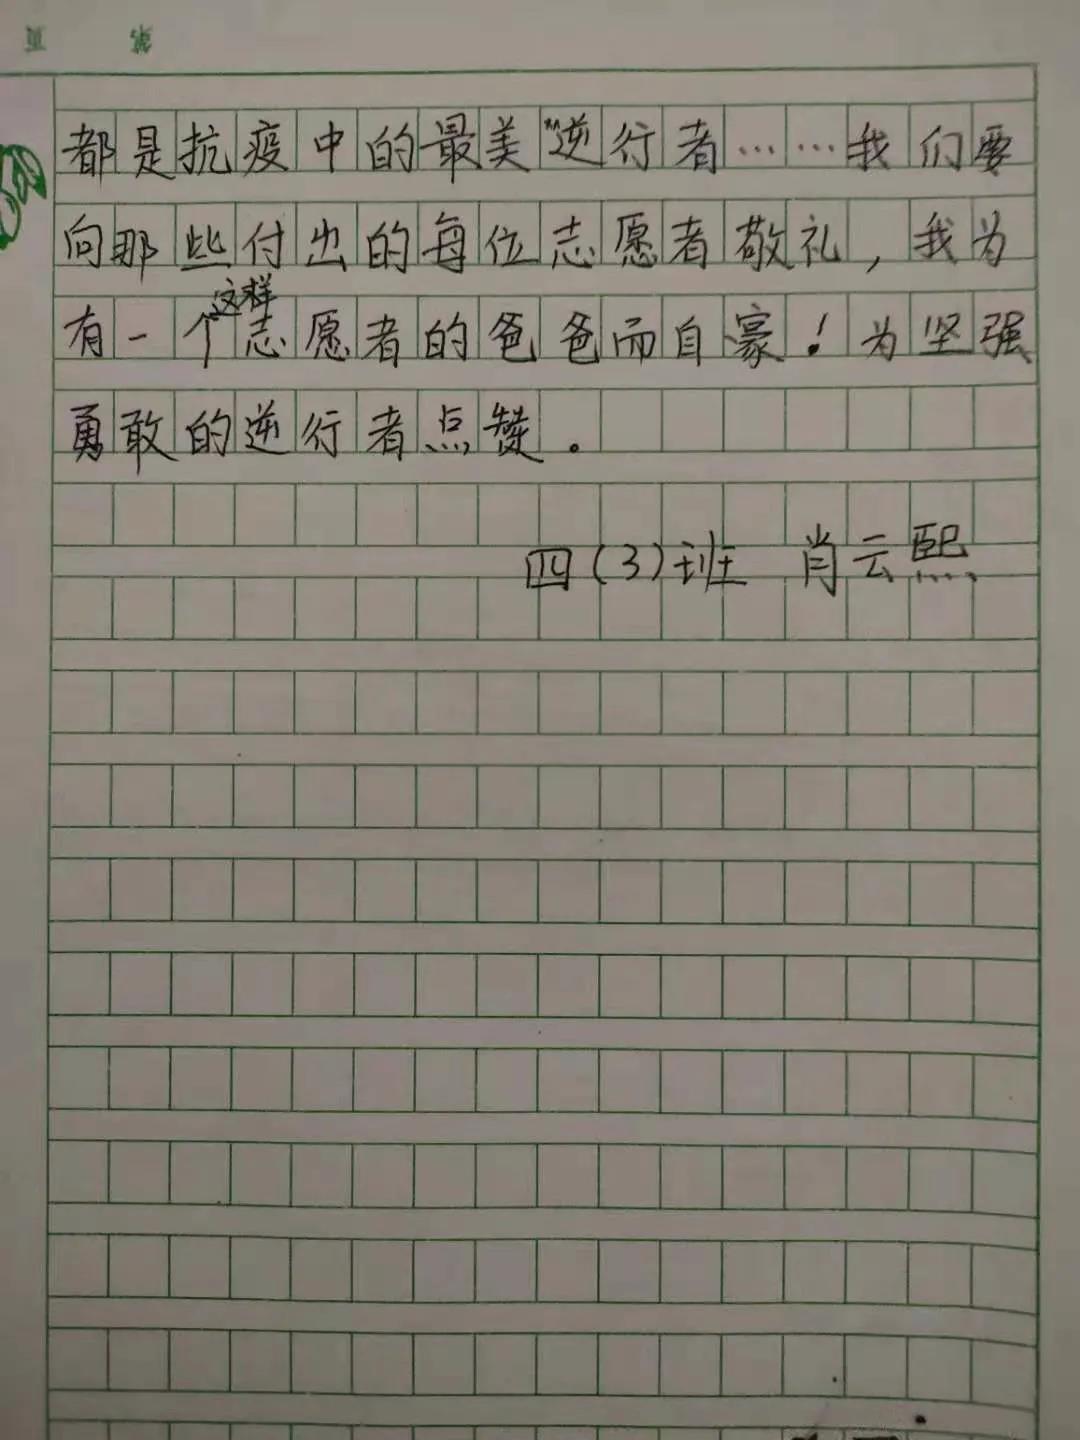 页 第
都是抗疫中的最美“逆行者……我们要
向那些付出的每位志愿者敬礼，我为
有一个这样志愿者的爸爸而自豪！为坚强
勇敢的逆行者点赞。
四(3)班 肖云熙